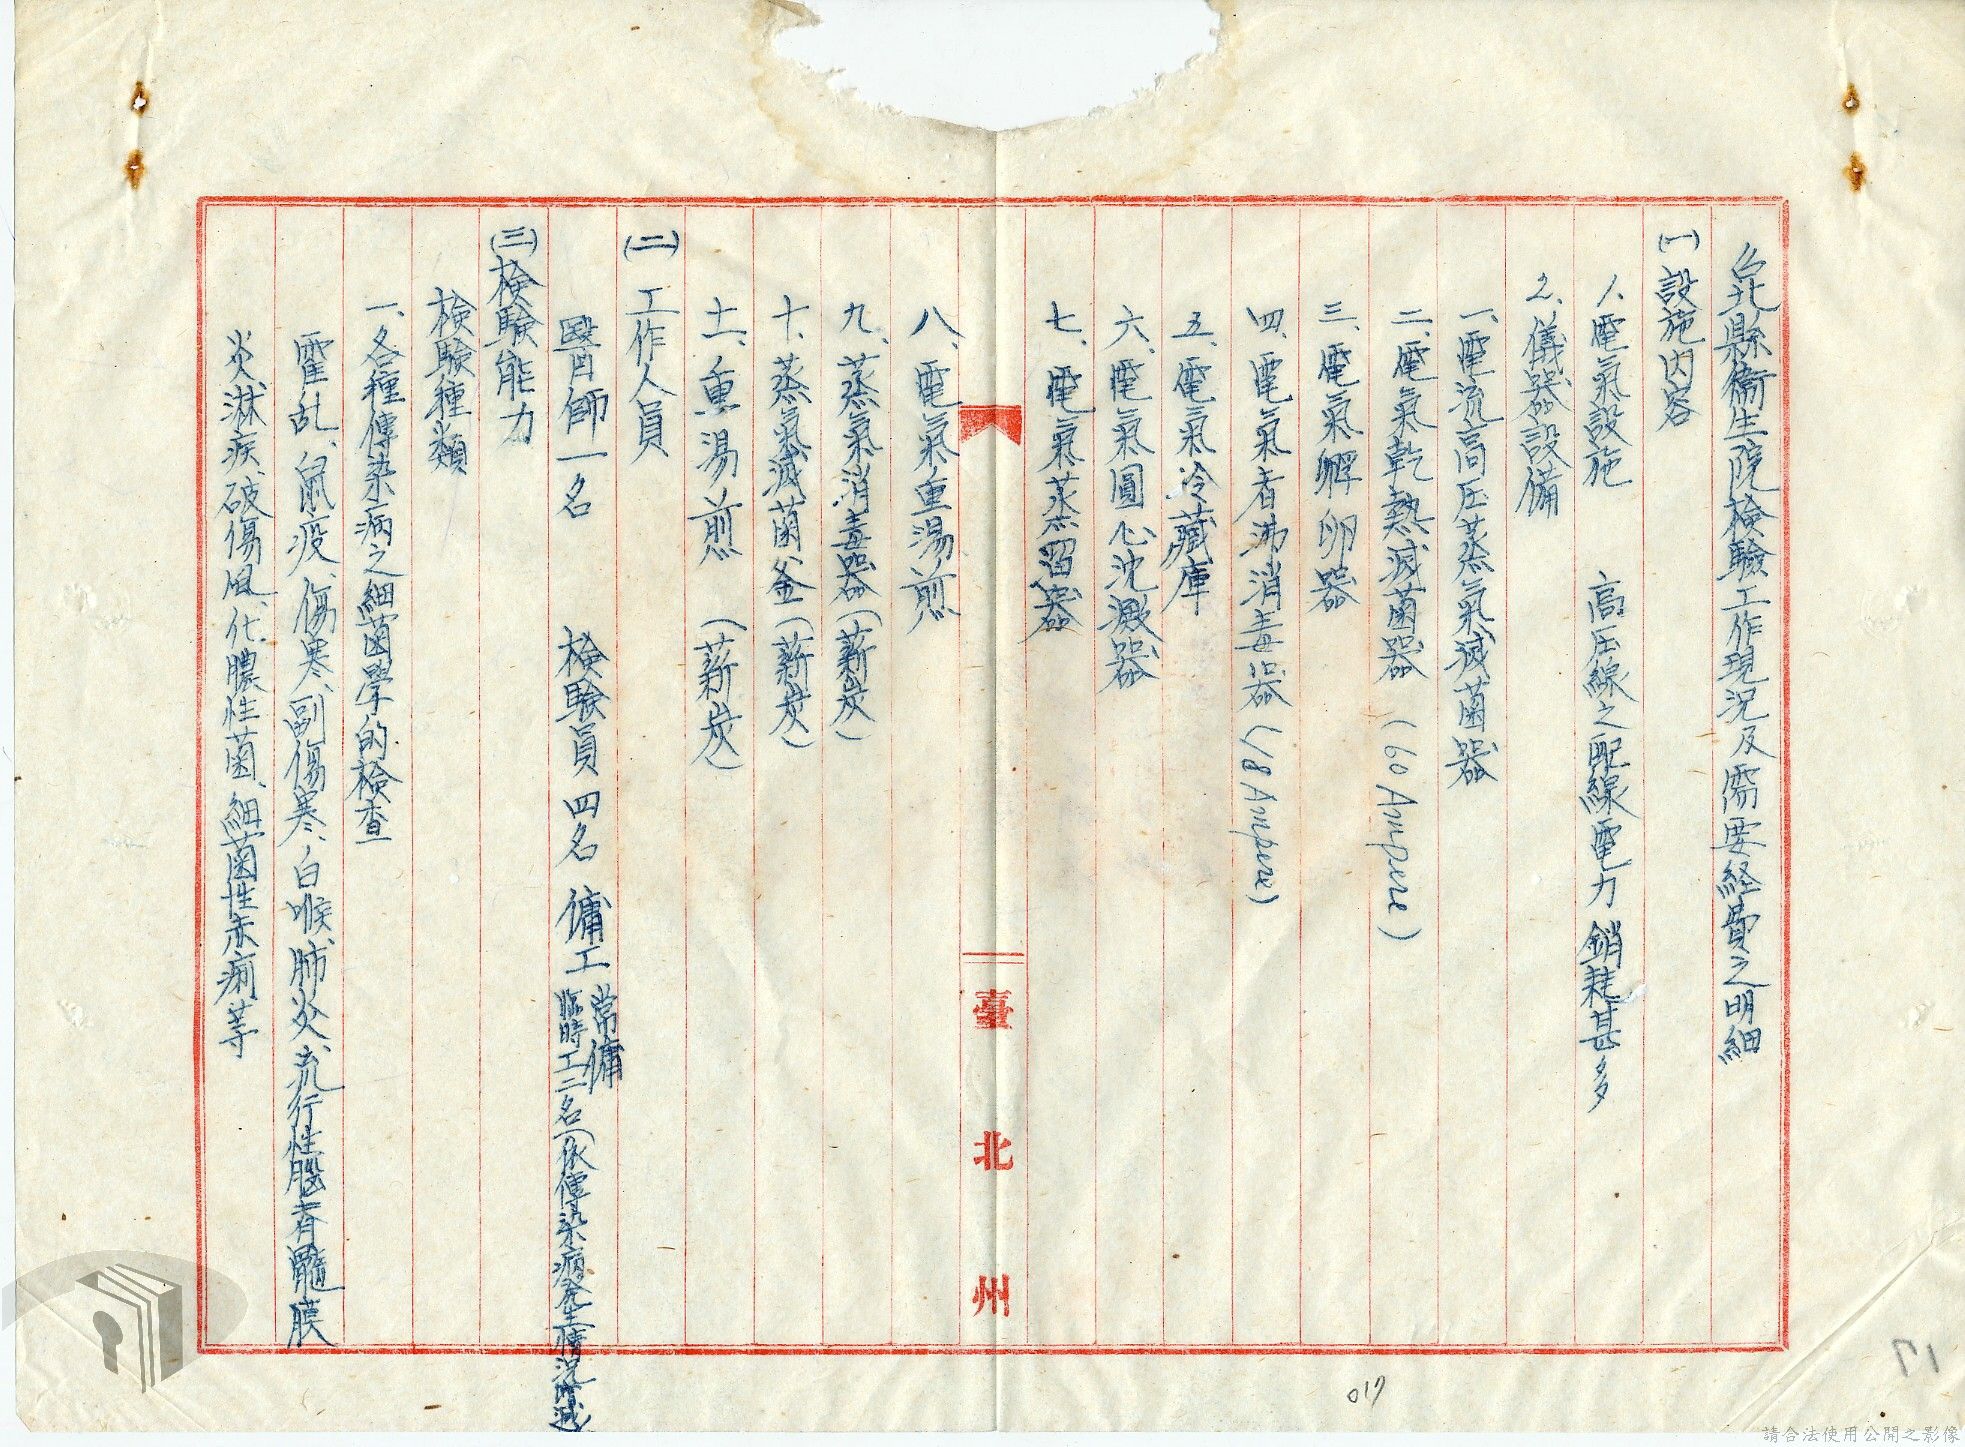 台北縣衛生院檢驗工作現況及需要経費之明細
(一)設施内容
1.電氣設施　高圧線之配線電力銷耗甚多
2.儀器設備
一、電流高圧蒸氣滅菌器
二、電氣乾熱滅菌器(60 Ampere)
三、電氣孵卵器
四、電氣者沸消毒器(18 Ampere)
五、電氣冷藏庫
六、電氣圓心沈澱器
七、電氣蒸溜器
臺北州
八、電氣重湯煎
九、蒸氣消毒器(薪炭)
十、蒸氣滅菌釜(薪炭)
十一、重湯煎(薪炭)
(二)工作人員
醫師一名　檢験員四名　傭工 常傭
臨時工二名(依傳染病発生情況增減
(三)檢験能力
檢験種類
一、各種傳染病之細菌學的檢查
霍乱、鼠疫、傷寒、副傷寒、白喉、肺炎、流行性腦脊髓膜
炎、淋疾、破傷風、化膿性菌、細菌性赤痢等
017
17
請合法使用公開之影像